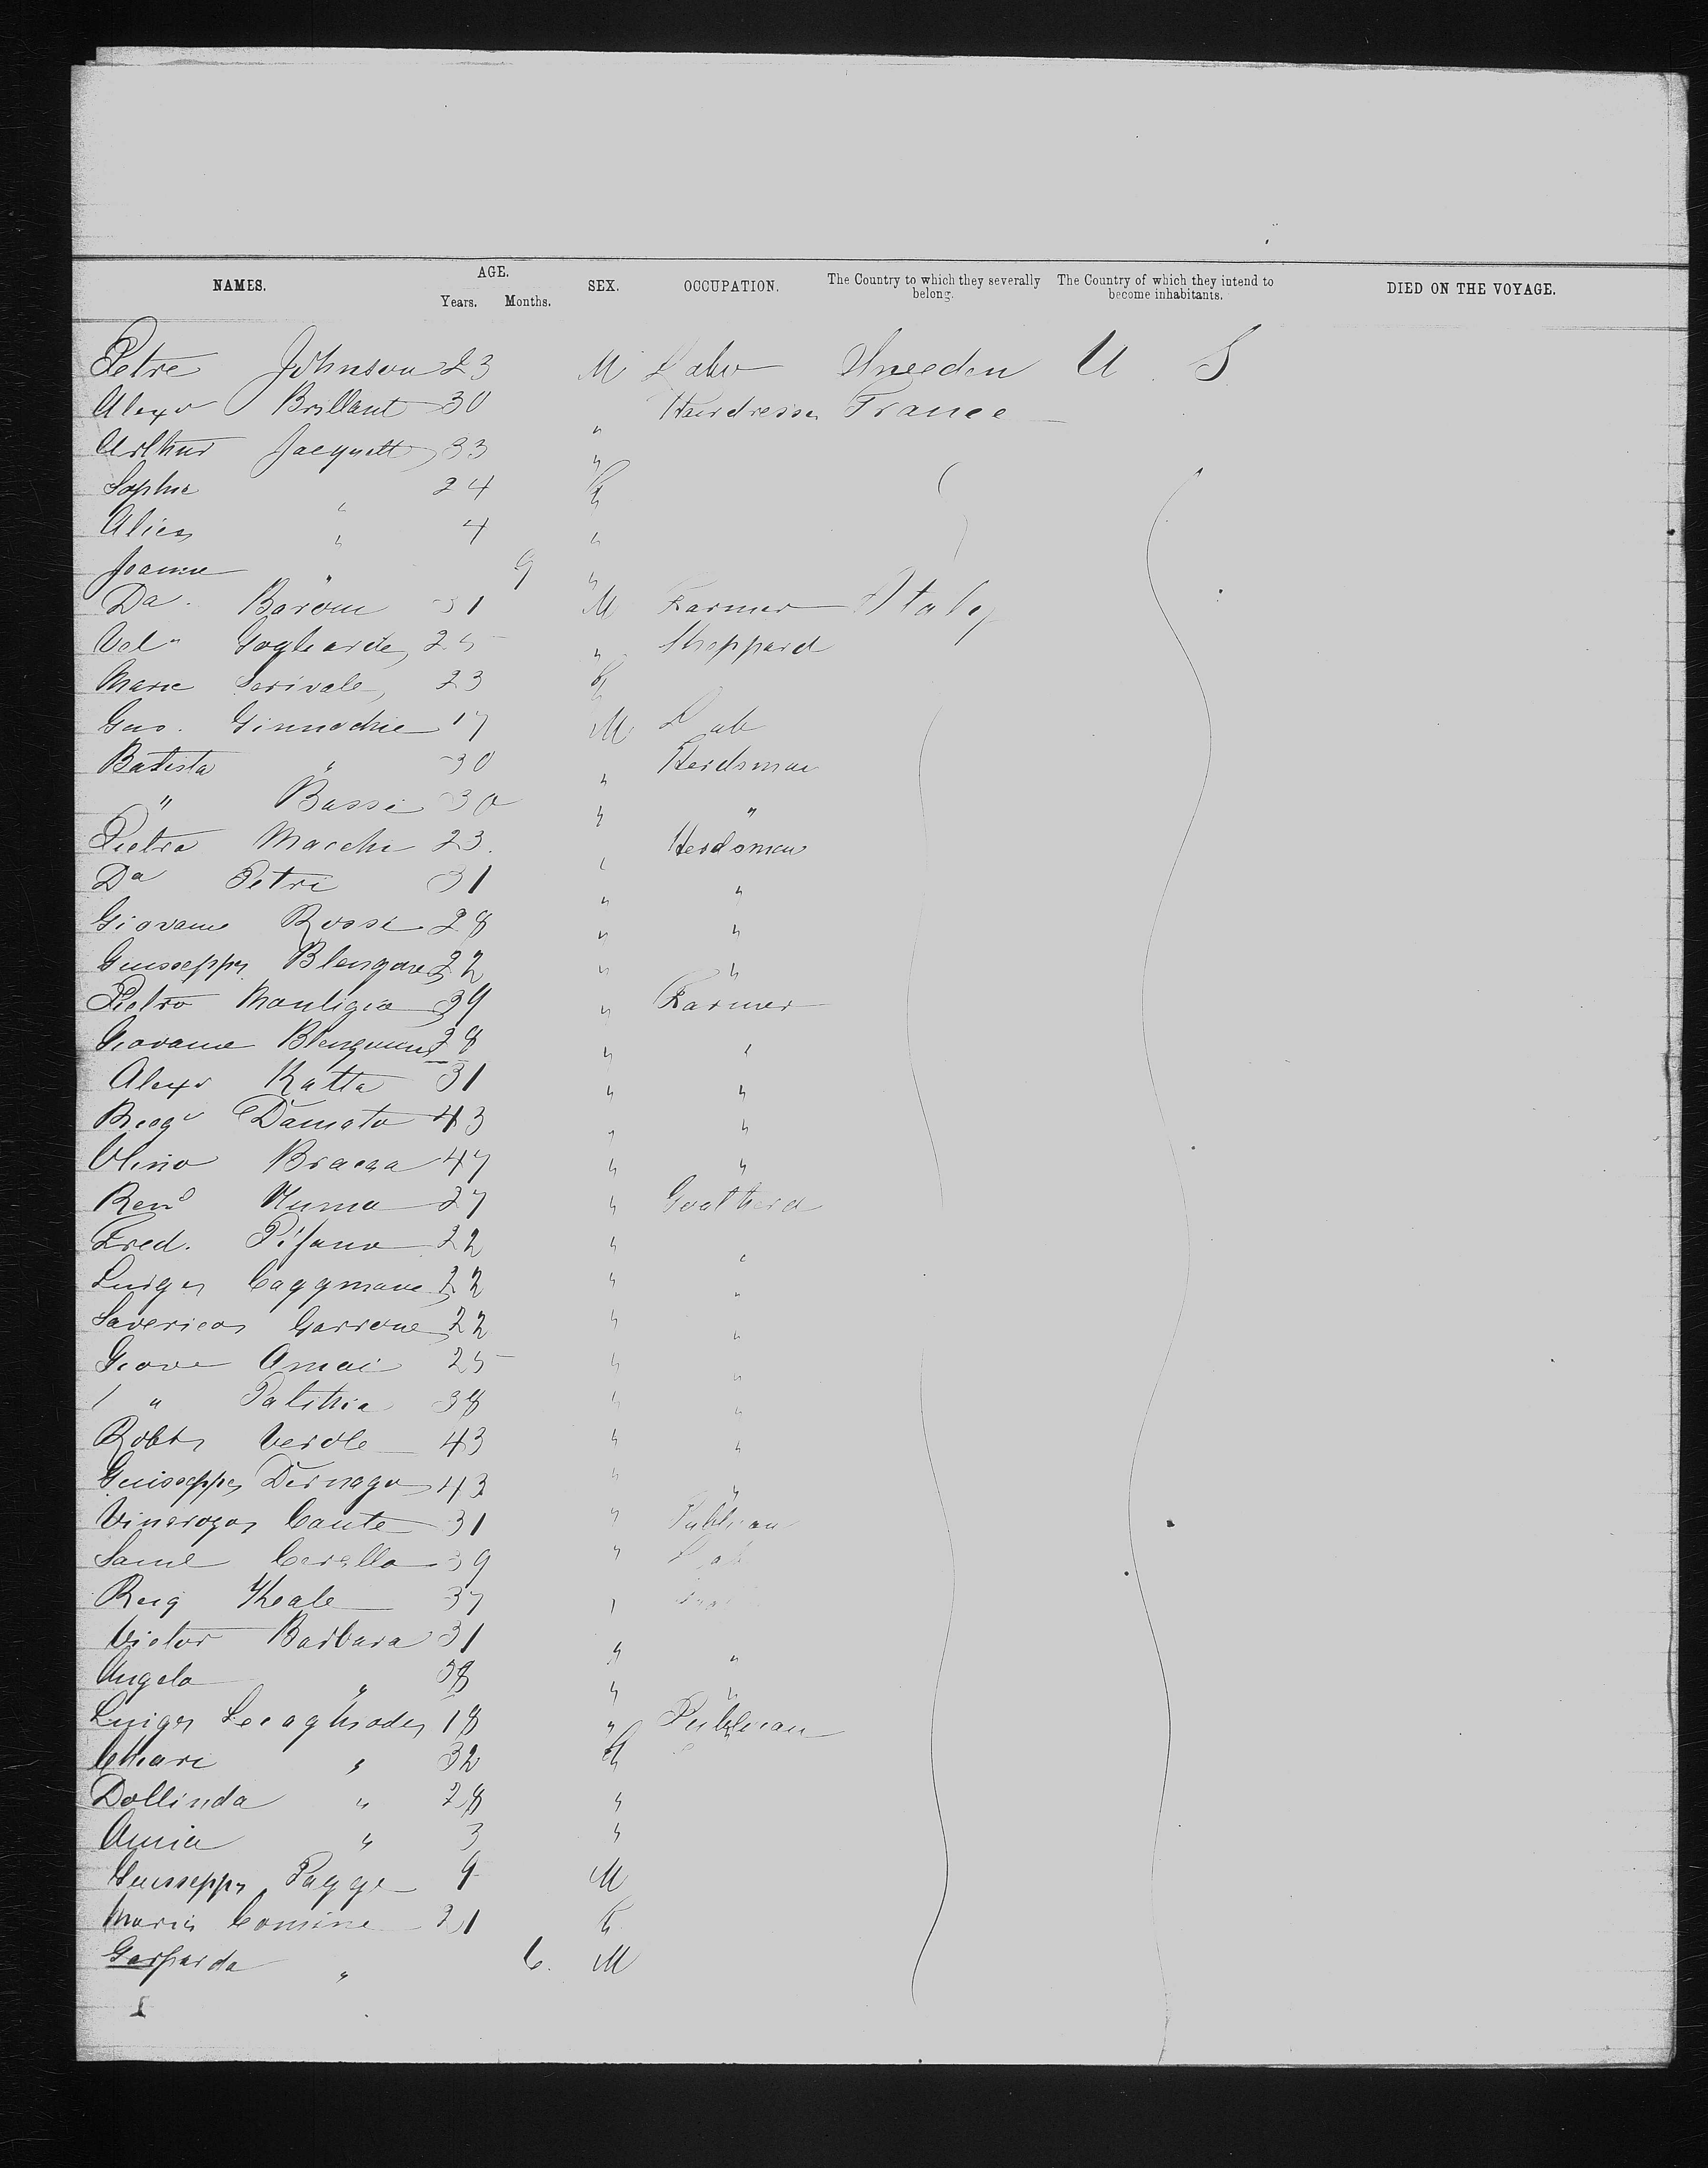 NAMES. AGE. Years. Months. SEX. OCCUPATION. The Country to which they severally belong. The Country of which they intend to become inhabitants. DIED ON THE VOYAGE.
Petre Johnson 23 M Labr Sweeden U. S
Alexr Brillant 30 " Hairdresser France
Arthur Jacquett 33 "
Sophie " 24 F
Alice " 4 "
Joanne " 9 "
Da. Barom 31 M Farmer Italy
Val 25 " Sheppard
Marie Serivale 23 F
Gus. Ginnochie 17 M Lab
Batista " 30 " Herdsman
" Bassi 30 " "
Pietro Macchi 23 " Herdsman
Da Petri 31 " "
Giovane Rossi 28 " "
Guisseppy 22 " "
Pietro Mouligia 39 " Farmer
Giovane 28 " "
Alexr Ratta 31 " "
Damato 43 " "
Olino Bracca 47 " "
Numa 27 " Goatherd
Fred. Pifano 22 " "
Luigy Caggmane 22 " "
Saverico Garrone 22 " "
Giove Amai 25 " "
" Palithia 38 " "
Robt Verole 43 " "
Guisseppe Dernago 43 " "
Caute 31 " Publican
Saml Cerella 39 " Lab
Reig Heale 37 "
Victor Barbara 31 " "
Angelo " 38 " "
Luigy 18 " Publican
Chiari " 32 F
Dollinda " 28 "
Annia " 3 "
Guisseppy Pagge 9 M
Maria Comine 21 F
Gasparda " 6. M